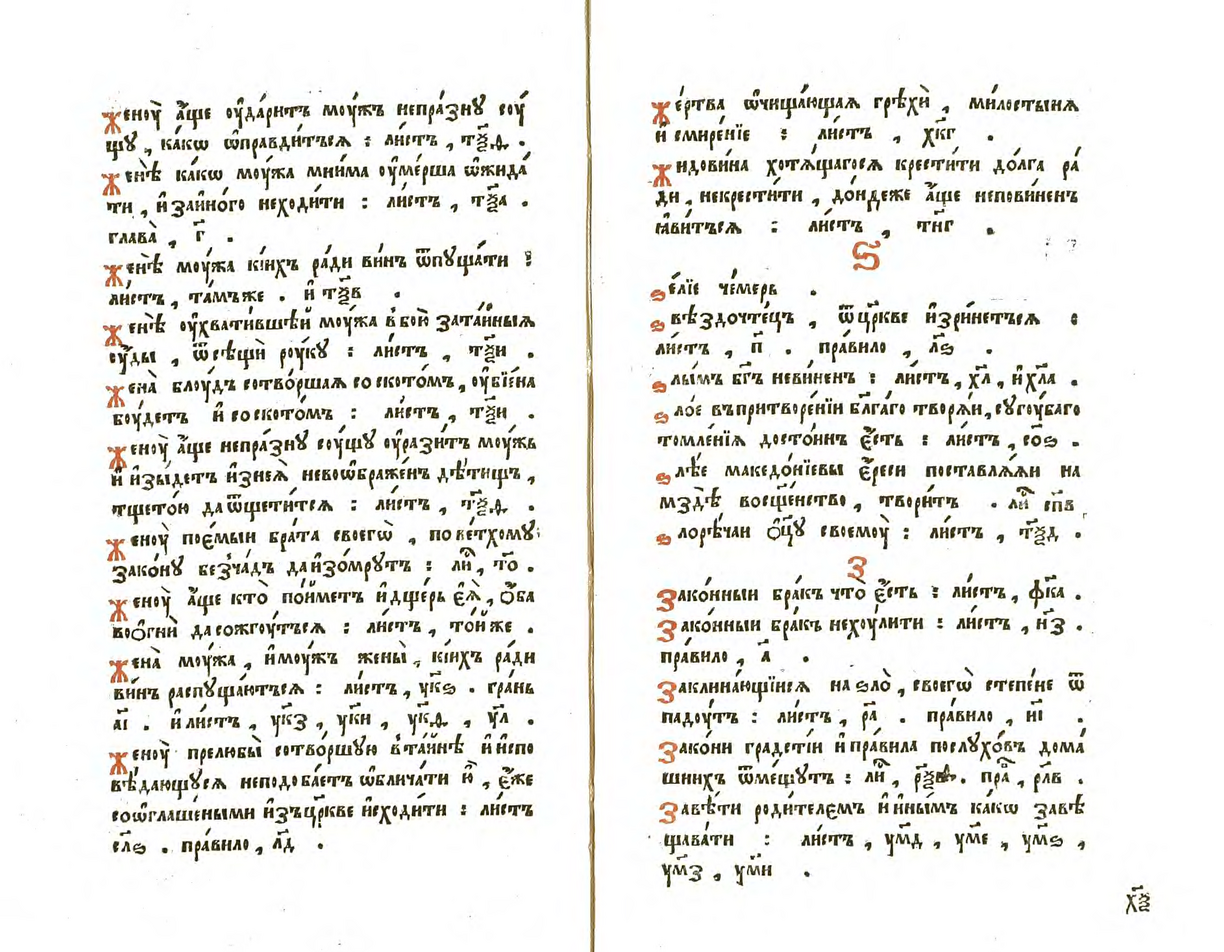 женоу҆̀ а҆́ще оу҆да́ритъ моу́жъ непра́зну соу́
щу , ка́кѡ ѡ҆правди́тъсѧ : ли́стъ , тѯ҃ѳ .
женѣ̀ ка́кѡ моу́жа мни́ма оу҆ме́рша ѡ҆жида́
ти , и҆ заино́го неходи́ти : ли́стъ , тѯ҃а .
глава̀ , г҃ .
женѣ̀ моу́жа кі́ихъ ра́ди ви́нъ ѿпуща́ти :
ли́стъ , та́мъже . и҆ тѯ҃в .
женѣ̀ оу҆хвати́вшѣй моу́жа в̾бою̀ зата́йныѧ
су́ды , ѿсѣщѝ роу́ку : ли́стъ , тѯ҃и .
жена̀ блоу́дъ сотво́ршаѧ со ското́мъ , оу҆бїе́на
боу́детъ и҆ со ското́мъ : ли́стъ , тѯ҃и .
женоу҆̀ а҆́ще непра́зну соу́щу оу҆рази́тъ моу́жь
и҆ и҆зы́детъ и҆знеѧ̀ невоѡ҆браже́нъ дѣ́тищъ ,
тщето́ю да ѿщети́тсѧ : ли́стъ , тѯ҃ѳ .
женоу҆̀ пое́мыи бра́та своегѡ̀ , по ве́тхому
зако́ну безча́дъ да и҆зо́мрутъ : ли́ , то҃ .
женоу҆̀ а҆́ще кто̀ по́йметъ и҆ дще́рь е҆ѧ̀ , ѻ҆́ба
воо҆гнѝ да сожгоу́тъсѧ : ли́стъ , то́й же .
жена̀ моу́жа , и҆ моу́жъ жены̀ , кі́ихъ ра́ди
ви́нъ распуща́ютъсѧ : ли́стъ , ук҃ѕ . гра́нь
а҃і . и҆ ли́стъ , ук҃з , ук҃и , ук҃ѳ , у҃л .
женоу҆̀ прелюбы̀ сотво́ршую в̾та́йнѣ и҆ и҆спо
вѣ́дающуюсѧ неподоба́етъ ѡ҆блича́ти ю҆̀ , е҆́же
соѡ҆глаше́ными и҆зъ цр҃кве и҆сходи́ти : ли́стъ
сл҃ѕ . пра́вило , л҃д .
же́ртва ѡ҆чища́ющаѧ грѣхѝ , ми́лостынѧ
и҆ смире́нїе : ли́стъ , хк҃г .
жидови́на хотѧ́щагосѧ крести́ти до́лга ра́
ди , некрести́ти , до́ндеже а҆́ще непови́ненъ
ꙗ҆ви́тъсѧ : ли́стъ , тн҃г .
Ѕ
ѕе́лїе че́мерь .
ѕвѣздочте́цъ , ѿ цр҃кве и҆зри́нетъсѧ :
ли́стъ , п҃ . пра́вило , л҃ѕ .
ѕлы́мъ бг҃ъ неви́ненъ : ли́стъ , х҃л , и҆ хл҃а .
ѕло́е въ притворе́нїи бл҃га́го творѧ́и , сугоу́баго
томле́нїѧ досто́инъ е҆́сть : ли́стъ , со҃ѕ .
ѕлѣ́е македо́нїевы е҆́реси поставлѧ́ѧи на
мздѣ̀ восщ҃е́нство , твори́тъ . ли́ сп҃в
ѕлорѣ́чаи ѻ҆ц҃у̀ своемоу̀ : ли́стъ , тѯ҃д .
З
Зако́нныи бра́къ что̀ е҆́сть : ли́стъ , фк҃а .
Зако́нныи бра́къ нехоу́лити : ли́стъ , н҃з .
пра́вило , а҃ .
Заклина́ющїисѧ на ѕло̀ , своегѡ̀ степе́не ѿ
падоу́тъ : ли́стъ , р҃а . пра́вило , и҃і .
Зако́ни гра́дстїи и҆ пра́вила послу́хо́въ дома́
шнихъ ѿме́щутъ : ли́ , рѯ҃в . пра́ , рл҃в .
Завѣ́ти роди́телемъ и҆ и҆ны́мъ ка́кѡ завѣ
щава́ти : ли́стъ , ум҃д , ум҃е , ум҃ѕ ,
ум҃з , ум҃и .
х҃ѯ